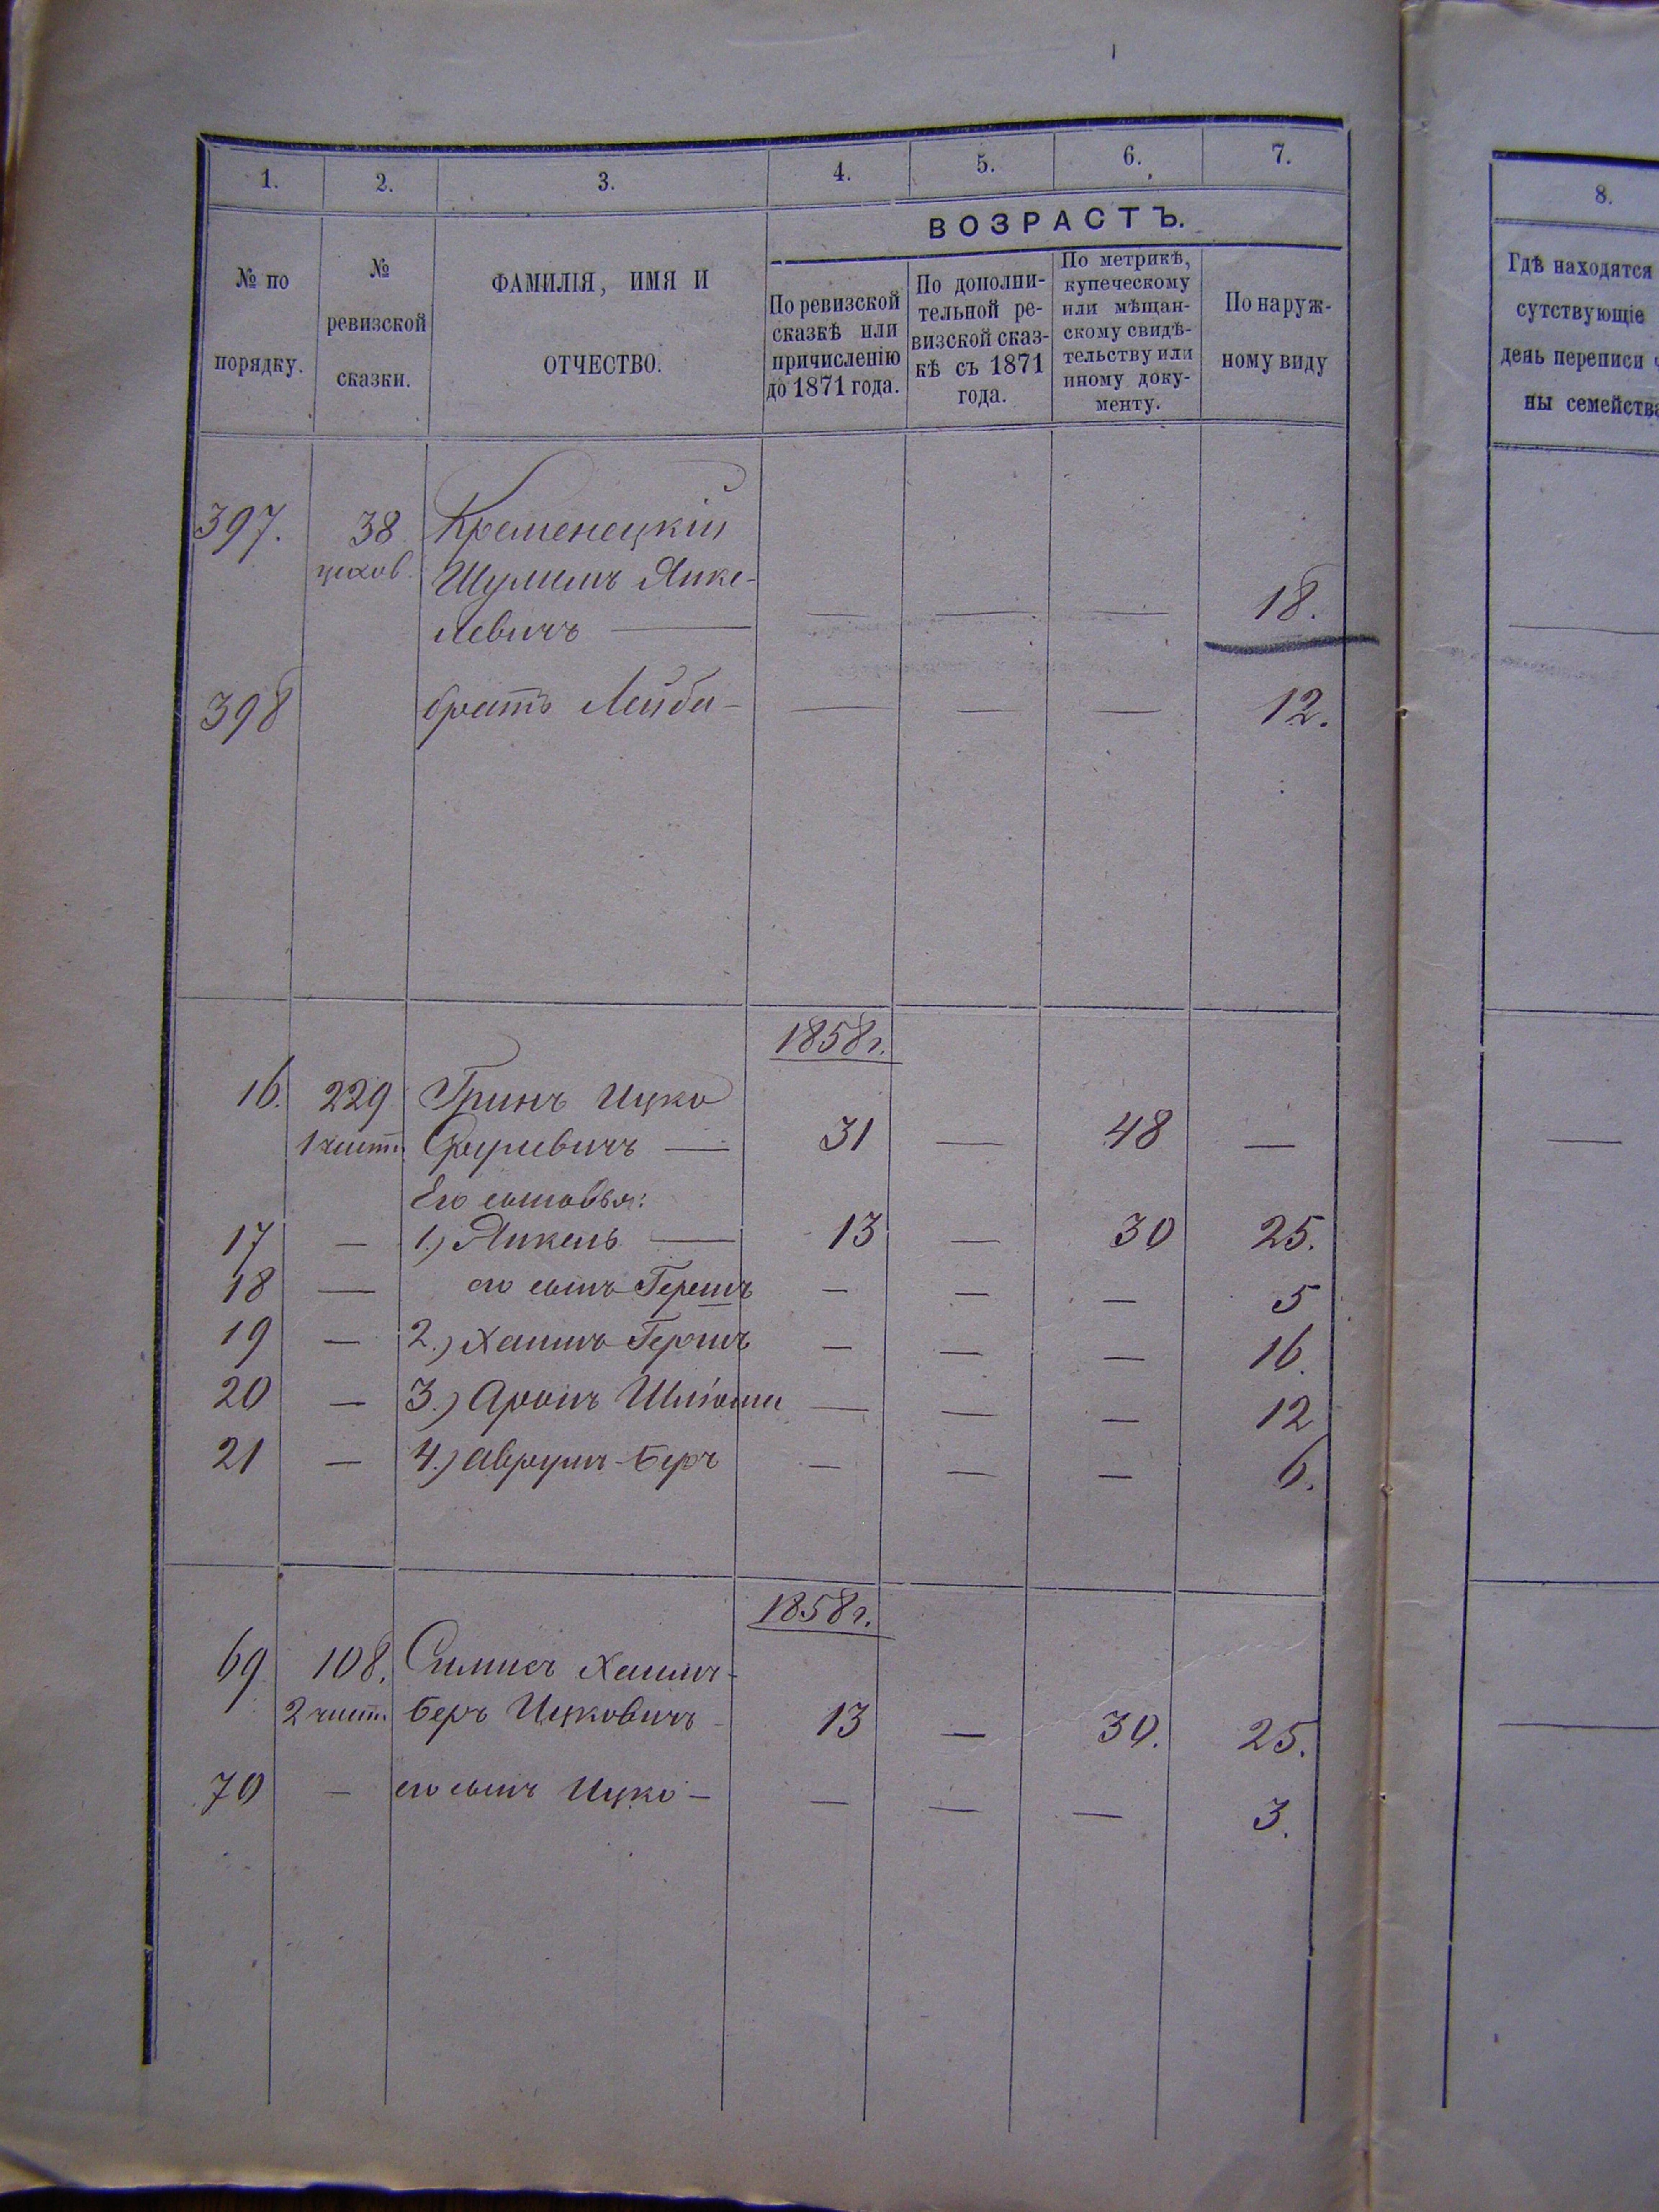 1. 2. 3. 4. 5. 6. 7.
ВОЗРАСТЪ.
№ по
порядку.
№
ревизской
сказки.
ФАМИЛІЯ, ИМЯ И
ОТЧЕСТВО.
По ревизской
сказкѣ или
причисленію
до 1871 года.
По дополни-
тельной ре-
визской сказ-
кѣ съ 1871
года.
По метрикѣ,
купеческому
или мѣщан-
скому свидѣ-
тельству или
иному доку-
менту.
По наруж-
ному виду
397. 38 Кременецкій
цехов. Шулимъ Янке-
левичъ — — — — 18.
398 братъ Лейба — — — — 12.
1858 г.
16. 229 Гринъ Ицко
1 чист. 31 — 48 —
Его сыновья:
17 — 1.) Янкель — 13 — 30 25.
18 — его сынъ Гершъ — — — 5
19 — 2.) Хаимъ Гершъ — — — 16.
20 — 3.) Аронъ Шліома — — — 12
21 — 4.) Аврумъ-Беръ — — — 6.
1858 г.
69 108. Хаимъ-
2 чист. Беръ Ицковичъ 13 — 30. 25.
70 — его сынъ Ицко — — — — 3.
8.
Гдѣ находятся
сутствующіе
день переписи ч
ны семейства